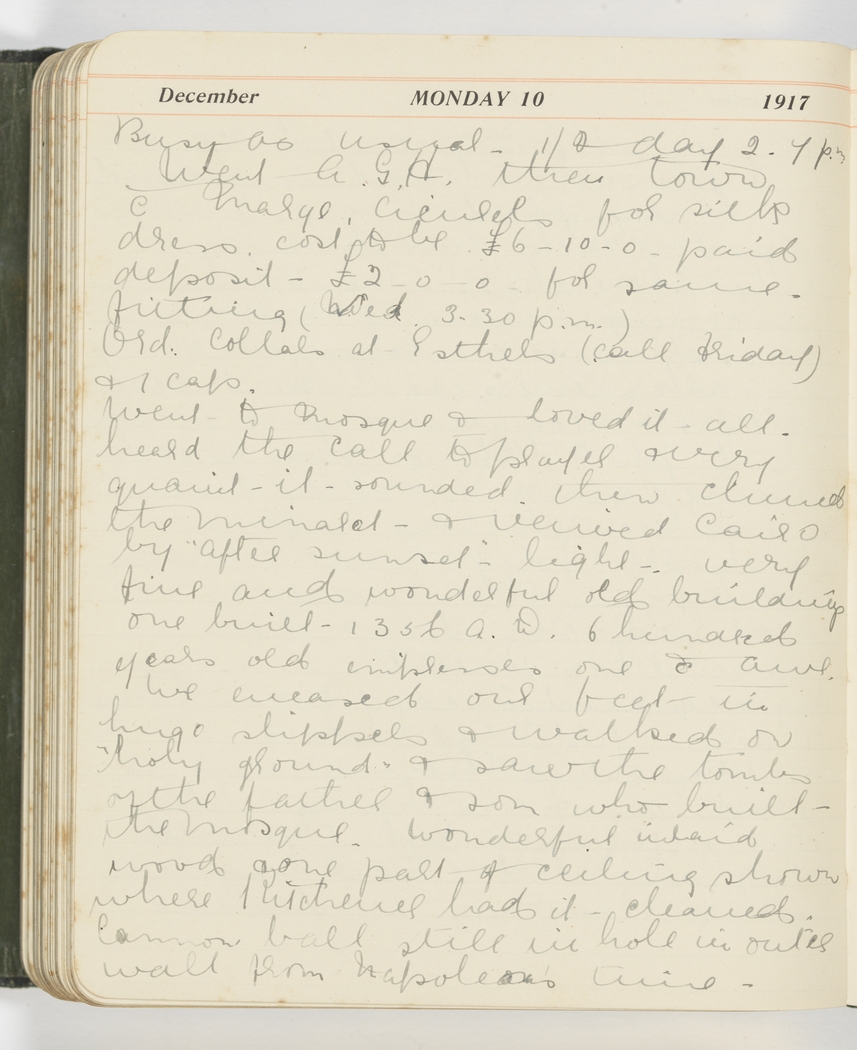 December MONDAY 10 1917
Busy as usual - 1/2 day 2. 7 p.m.
Went A.G.H. then town
c Marge, Cicurels for silk
dress. cost to be £6-10-0 - paid
deposit - £2-0-0- for same.
fitting (Wed. 3.30 p.m.)
Ord. Collars at Esthers (call Friday)
& 1 cap.
Went to Mosque & loved it all.
heard the call to prayer & very
quaint it sounded. then climbed
the minaret - & viewed Cairo
by "after sunset" light -. very
fine and wonderful old building
one built - 1356 A.D. 6 hundred
years old impresses one c awe.
We encased our feet in
huge slippers & walked on
"holy ground" & saw the tombs
of the father & son who built -
the Mosque. Wonderful inlaid
wood & one part of ceiling shown
where Kitchener had it - cleaned.
Cannon ball still in hole in outer
wall from Napoleon's time -